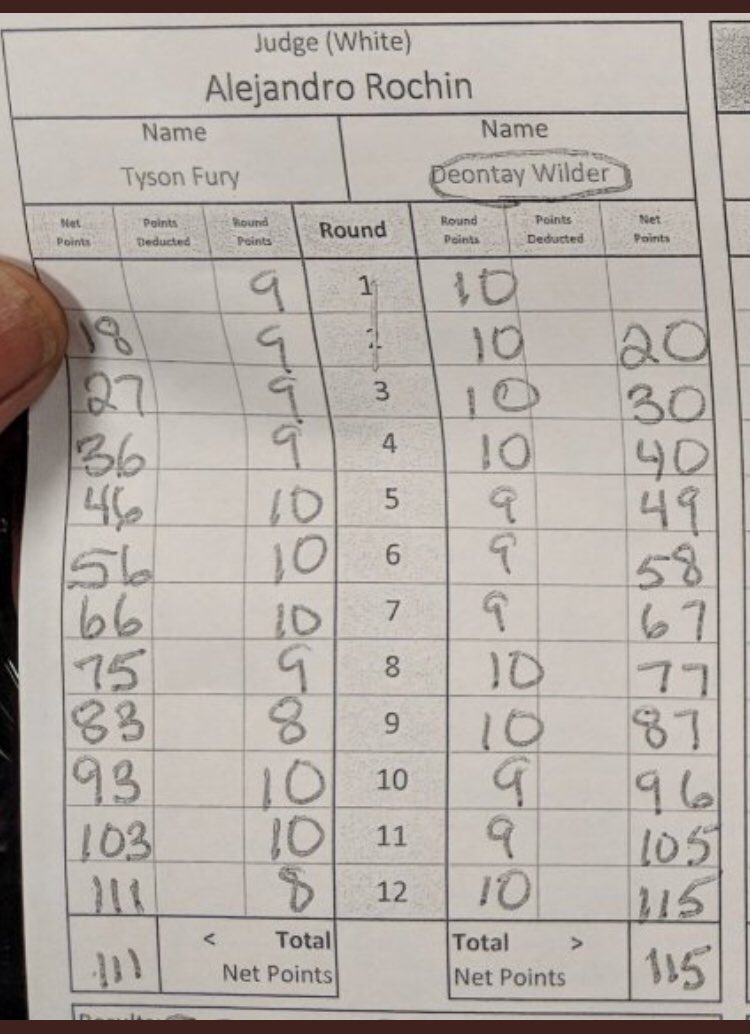 Judge (White)
Alejandro Rochin
Name Name
Tyson Fury Deontay Wilder
Net Points Points Deducted Round Points Round Round Points Points Deducted Net Points
9 1 10
18 9 2 10 20
27 9 3 10 30
36 9 4 10 40
46 10 5 9 49
56 10 6 9 58
66 10 7 9 67
75 9 8 10 77
83 8 9 10 87
93 10 10 9 96
103 10 11 9 105
111 8 12 10 115
111 < Total Net Points Total > Net Points 115